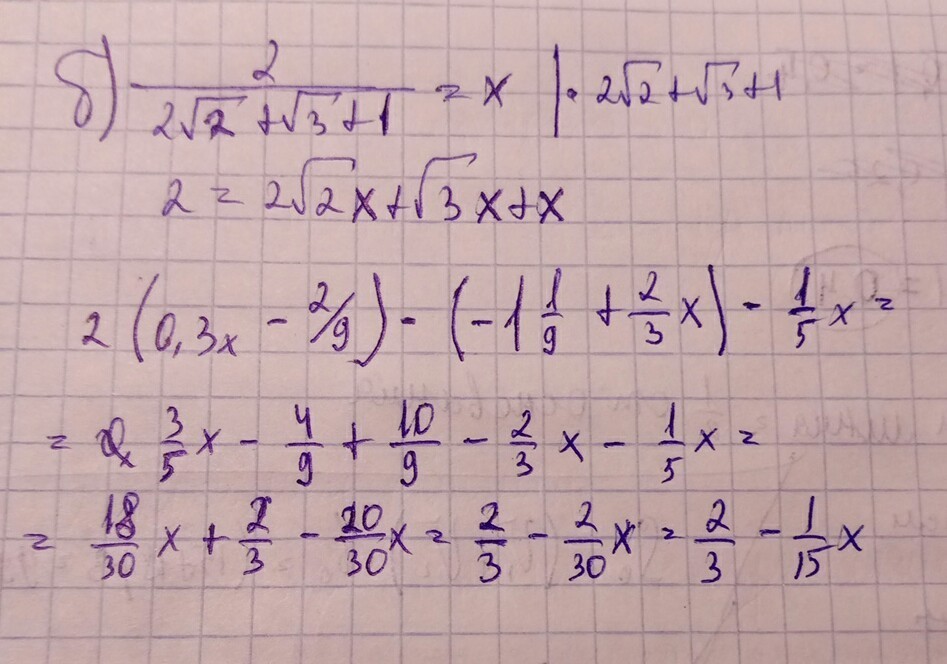 б) 2/(2√2 + √3 + 1) = x | · 2√2 + √3 + 1
2 = 2√2x + √3x + x
2 (0,3x - 2/9) - (-1 1/9 + 2/3 x) - 1/5 x =
= 3/5 x - 4/9 + 10/9 - 2/3 x - 1/5 x =
= 18/30 x + 2/3 - 20/30 x = 2/3 - 2/30 x = 2/3 - 1/15 x